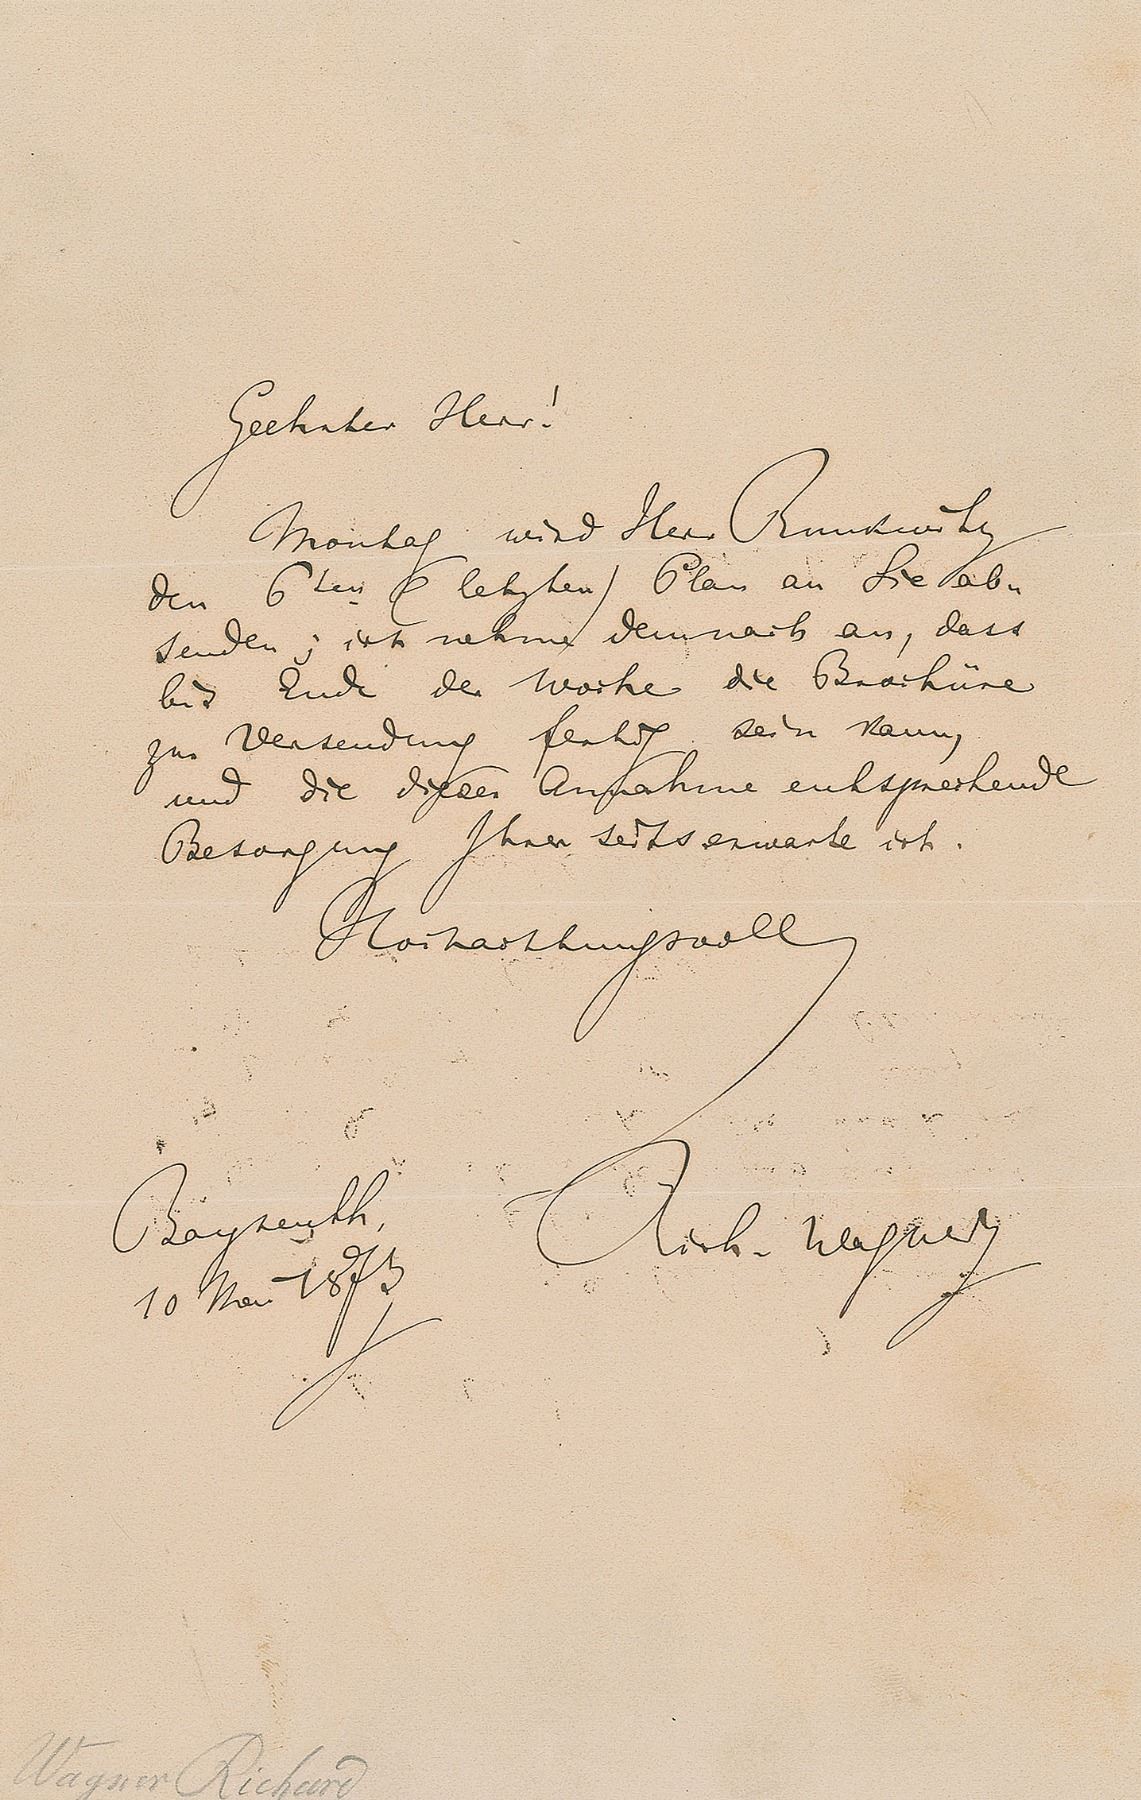 Geehrter Herr!
Montag wird Herr Runkwitz
den 6ten (letzten) Plan an Sie ab-
senden; ich nehme demnach an, dass
bis Ende der Woche die Brochüre
zur Versendung fertig sein kann,
und die dieser Annahme entsprechende
Besorgung Ihrer seits erwarte ich.
Hochachtungsvoll
Rich. Wagner
Bayreuth,
10 Mai 1873
Wagner Richard